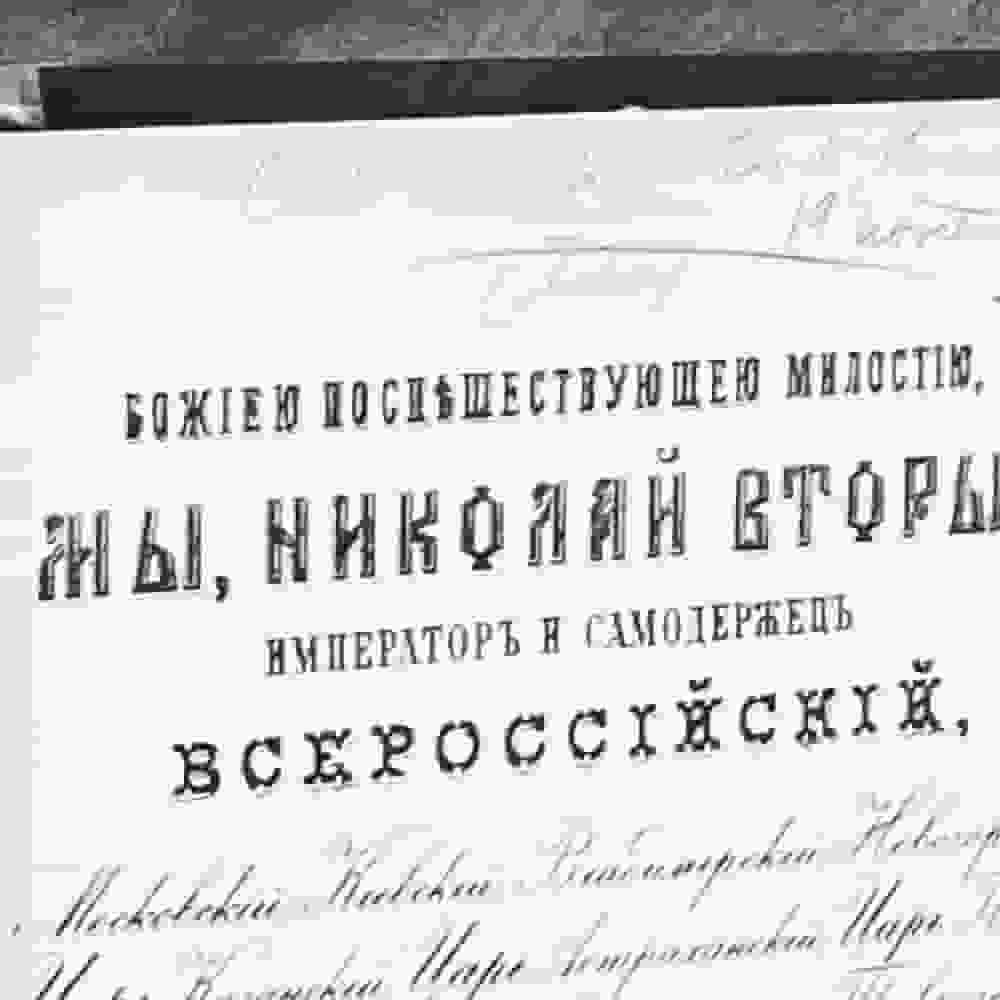 19
БОЖІЕЮ ПОСПѢШЕСТВУЮЩЕЮ МИЛОСТІЮ,
МЫ, НИКОЛАЙ ВТОРЫ
ИМПЕРАТОРЪ И САМОДЕРЖЕЦЪ
ВСЕРОССІЙСКІЙ,
Московскій Кіевскій Владимірскій Новогор
Царь Казанскій Царь Астраханскій Царь